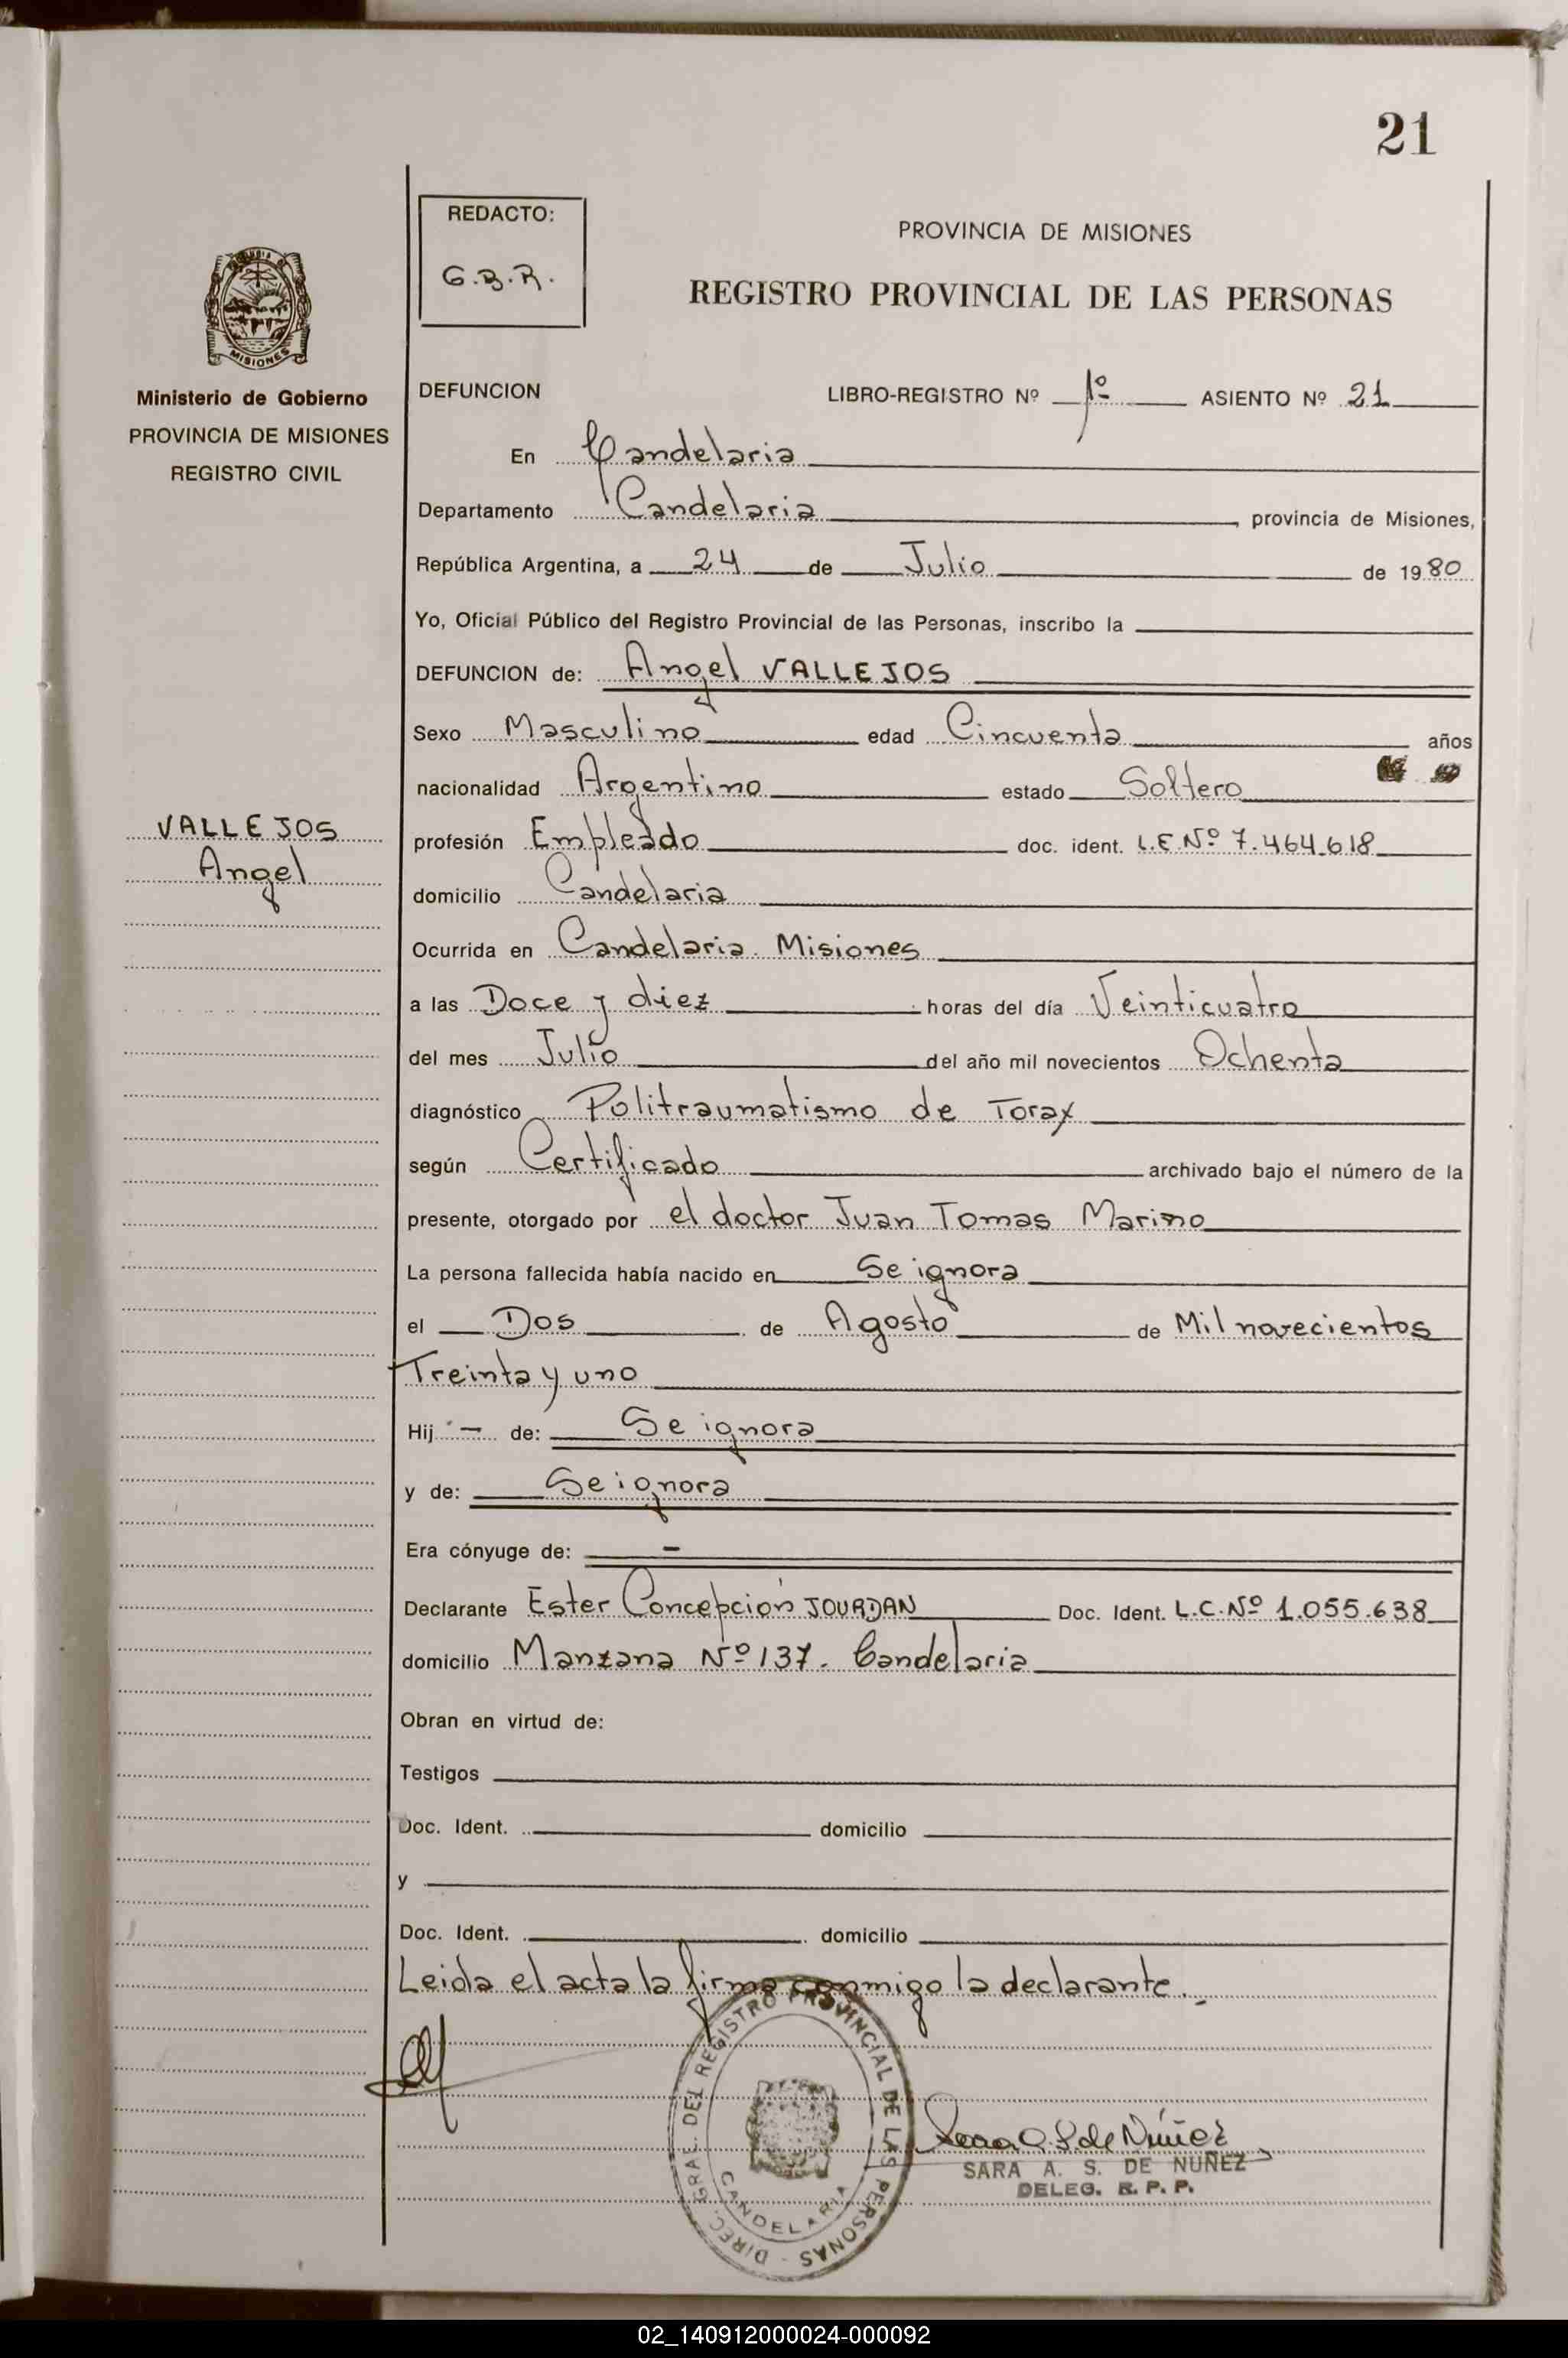 21
REDACTO:
G.B.R.
PROVINCIA DE MISIONES
REGISTRO PROVINCIAL DE LAS PERSONAS
MISIONES
Ministerio de Gobierno
PROVINCIA DE MISIONES
REGISTRO CIVIL
DEFUNCION LIBRO-REGISTRO Nº 1º ASIENTO Nº 21
En Candelaria
Departamento Candelaria, provincia de Misiones,
República Argentina, a 24 de Julio de 1980
Yo, Oficial Público del Registro Provincial de las Personas, inscribo la
DEFUNCION de: Angel VALLEJOS
Sexo Masculino edad Cincuenta años
nacionalidad Argentino estado Soltero
VALLEJOS
Angel
profesión Empleado doc. ident. L.E Nº 7.464.618
domicilio Candelaria
Ocurrida en Candelaria. Misiones
a las Doce y diez horas del día Veinticuatro
del mes Julio del año mil novecientos Ochenta
diagnóstico Politraumatismo de Torax
según Certificado archivado bajo el número de la
presente, otorgado por el doctor Juan Tomas Marino
La persona fallecida había nacido en Se ignora
el Dos de Agosto de Mil novecientos
Treinta y uno
Hij - de: Se ignora
y de: Se ignora
Era cónyuge de: -
Declarante Ester Concepción JOURDAN Doc. Ident. L.C. Nº 1.055.638
domicilio Manzana Nº 137. Candelaria
Obran en virtud de:
Testigos
Doc. Ident. domicilio
y
Doc. Ident. domicilio
Leida el acta la firma conmigo la declarante.
DIREC. GRAL. DEL REGISTRO PROVINCIAL DE LAS PERSONAS -
CANDELARIA
Sara A. S. de Núñez
SARA A. S. DE NUÑEZ
DELEG. R. P. P.
02_140912000024-000092